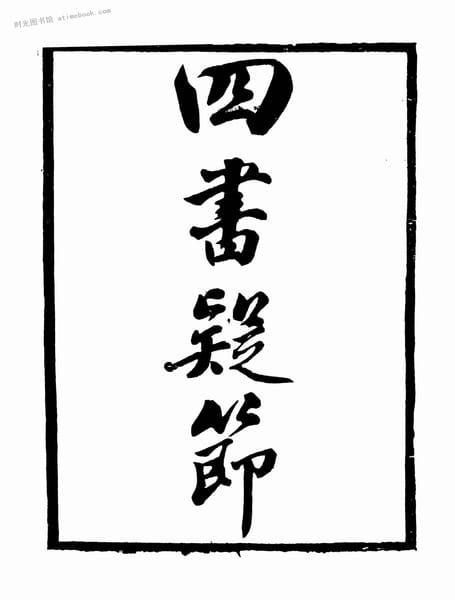 时光图书馆 atimebook.com
四書疑節